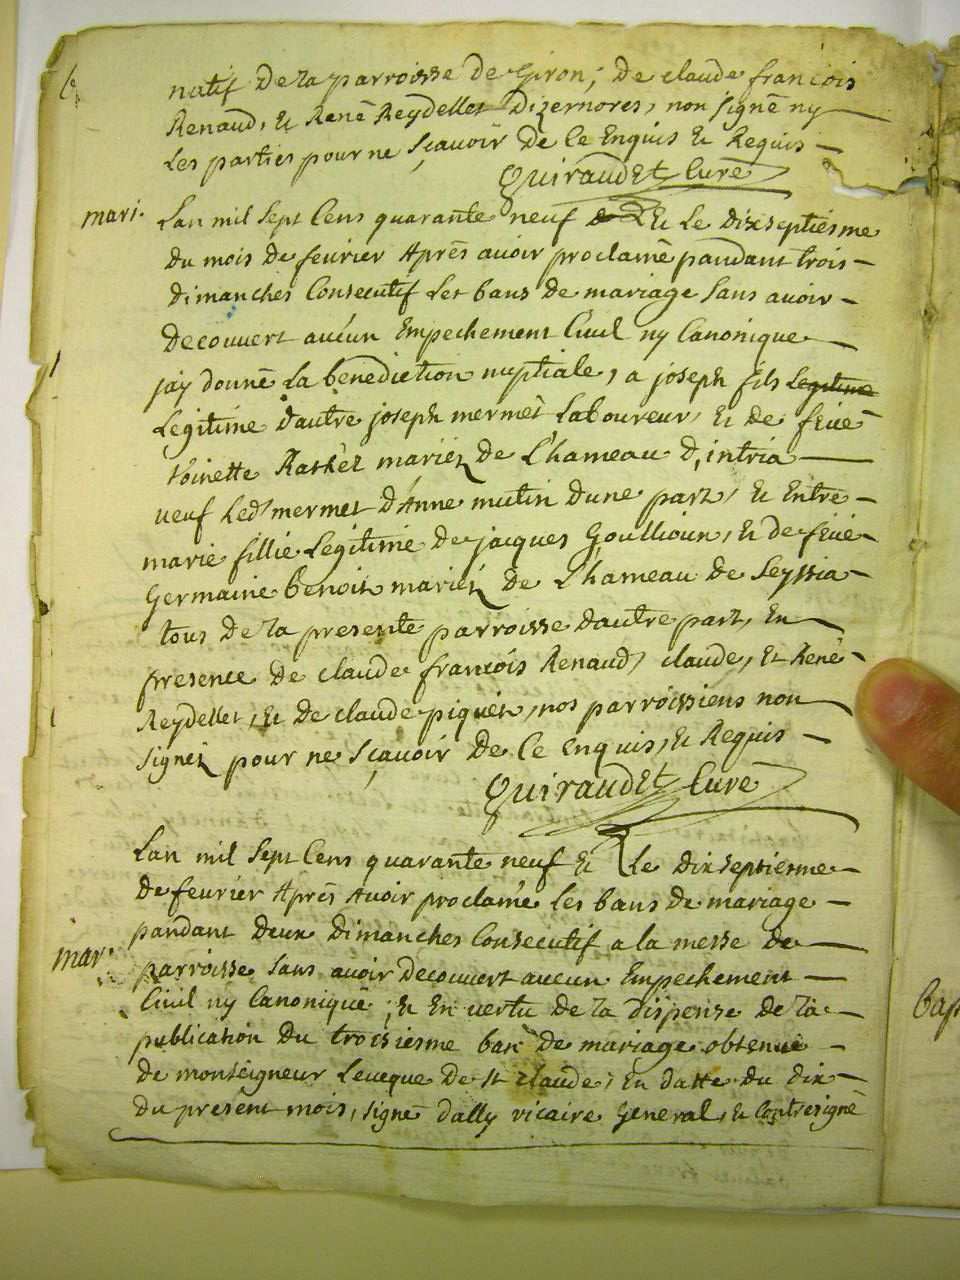 natif de la parroisse de Giron; de claude françois
Renaud, et René Reydellet dizernores, non signé ny
les parties pour ne sçavoir de ce Enquis et Requis
Quiraudet Curé
mari.
Lan mil sept Cens quarante neuf et Le dixseptiesme
du mois de fevrier Aprés avoir proclamé pandant trois
dimanches Consecutif Les bans de mariage sans avoir
decouvert aucun Empechement Civil ny Canonique
jay donné La benediction nuptiale, a joseph fils Legitime
Legitime dautre joseph mermet Laboureur, et de feüe
toinette mariez de Lhameau d'intria
veuf Led' mermet d'Anne mutin dune part, et Entre
marie fillie Legitime de jacques Goullioux, et de feüe
Germaine benoit mariez de Lhameau de Seyssia
tous de la presente parroisse dautre part, En
presence de claude françois Renaud, claude, et René
Reydellet, et de claude piquet, nos parroissiens non
signez pour ne sçavoir de Ce enquis, et Requis
Quiraudet Curé
mar:
Lan mil sept Cens quarante neuf et Le dixseptiesme
de fevrier Aprés Avoir proclamé Les bans de mariage
pandant deux dimanches Consecutif a la messe de
parroisse sans avoir decouvert aucun Empechement
Civil ny Canonique; et En vertu de la dispense de la
publication du troisiesme ban de mariage obtenue
de monseigneur Leveque de st claude, En datte du dix
du present mois, signé dally vicaire General, et Contresigné
Bap